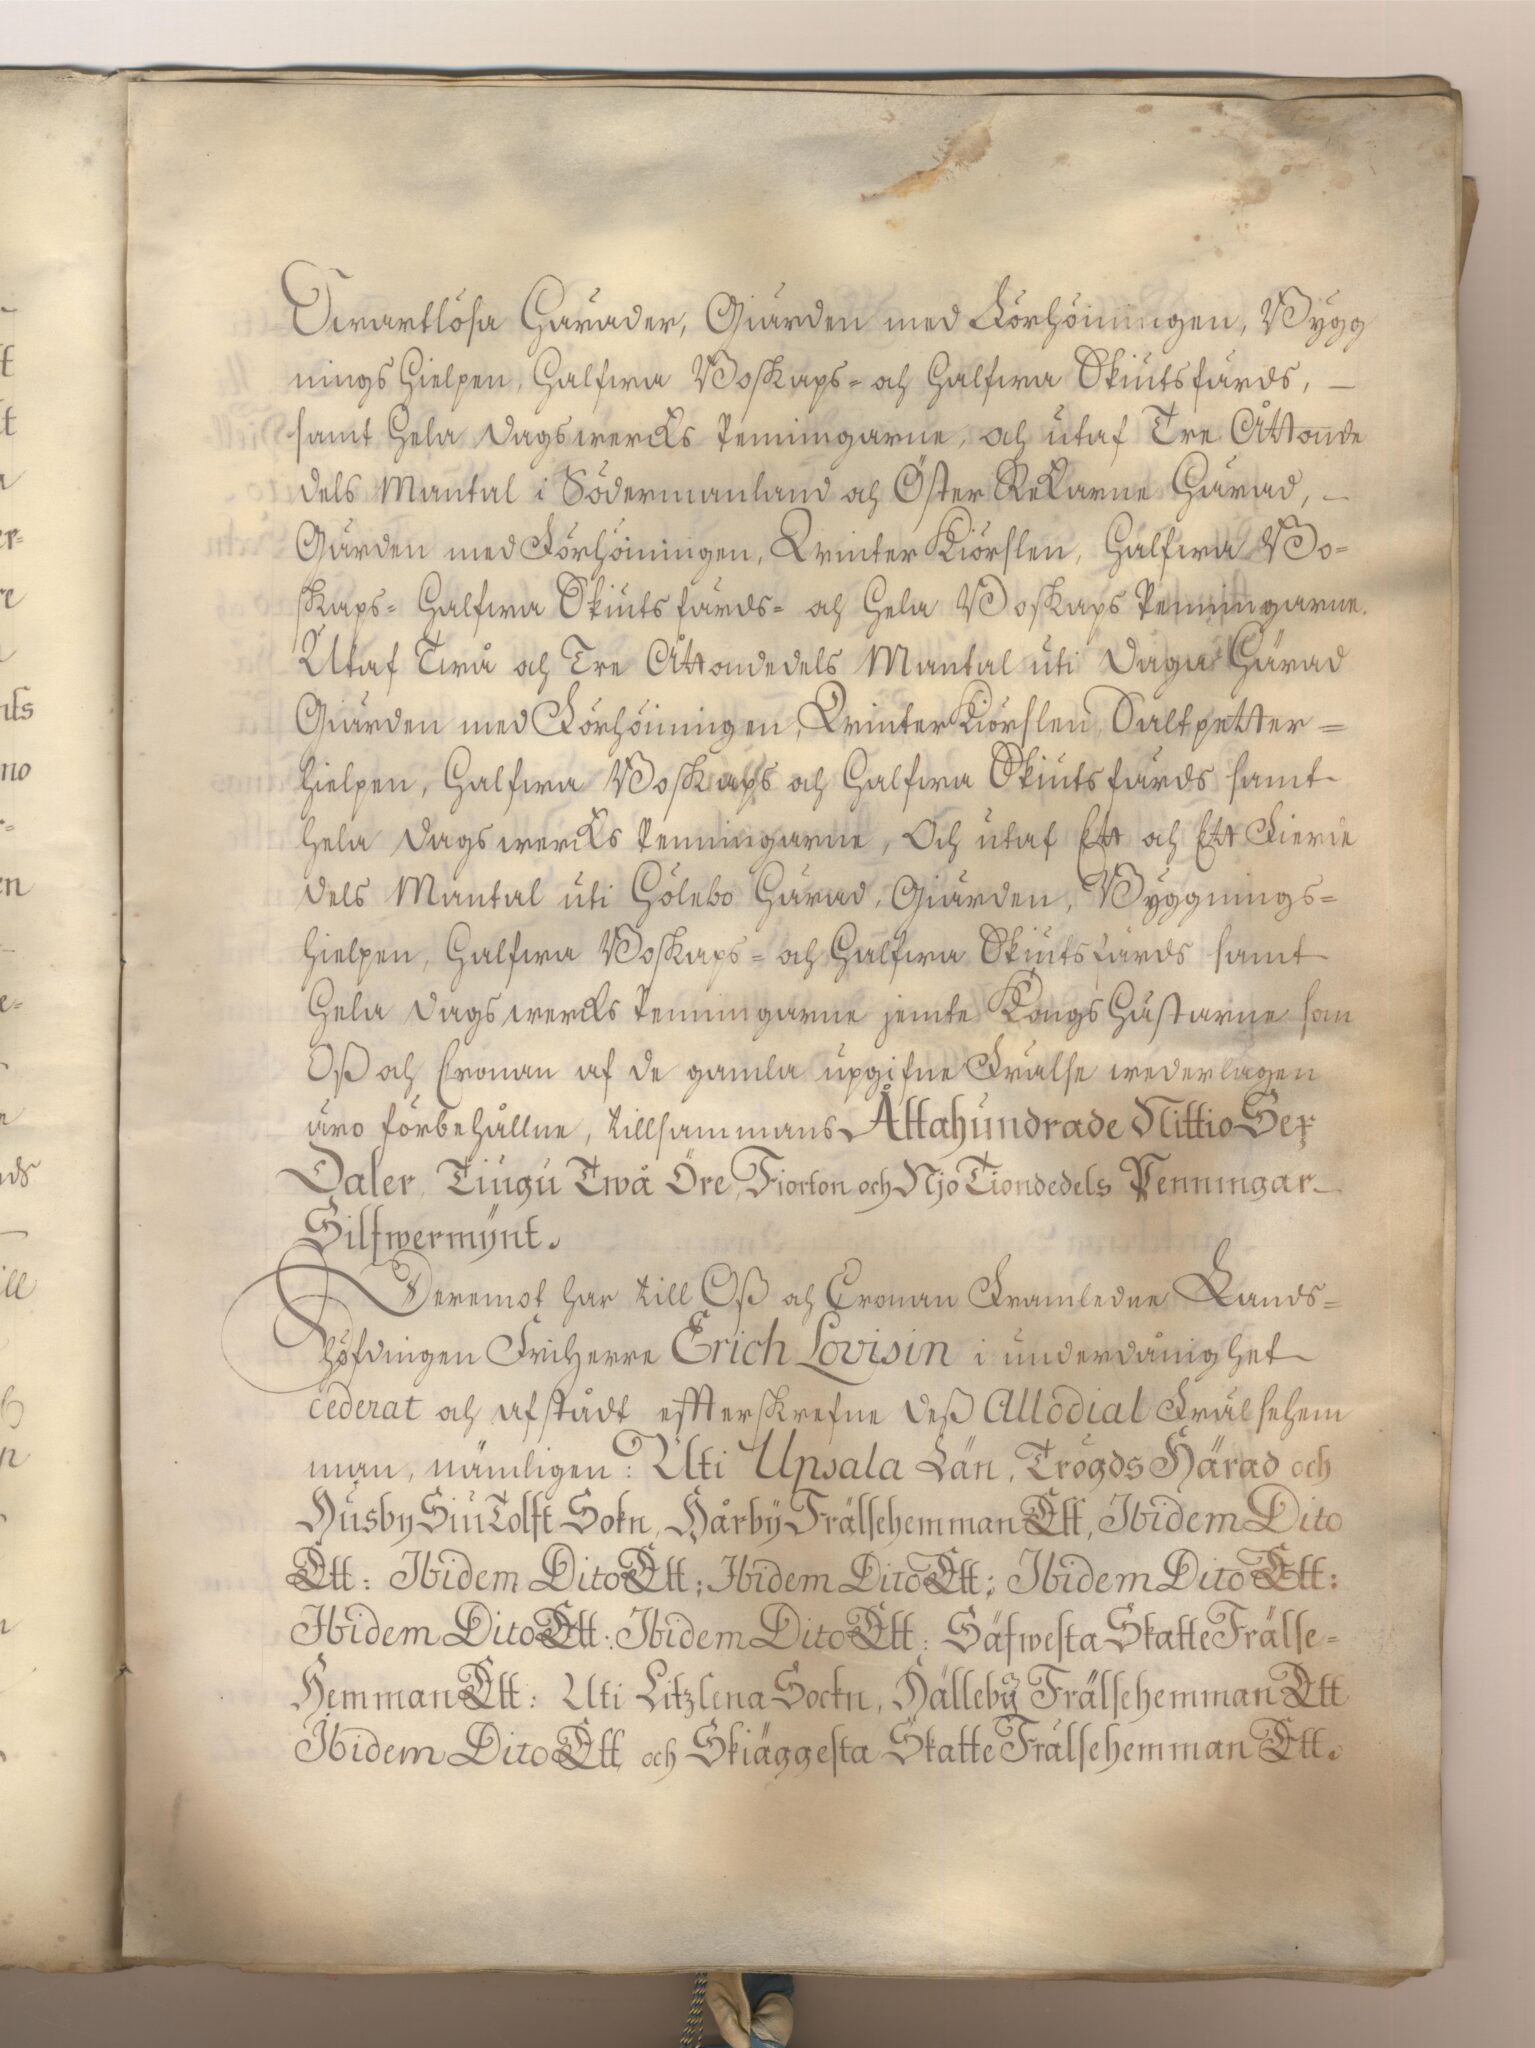 Swartlösa Härader, Giärden med Förhöiningen, Bygg
nings Hielpen, Halfwa Boskaps- och Halfwa Skiutsfärds, —
samt Hela Dagswercks Penningarne, och utaf Tre Åttonde
dels Mantal i Södermanland och Öster Rekarne Härad, —
Gärden med Förhöiningen, Qvinter Kiörslen, Halfwa Bo-
skaps- Halfwa Skiutsfärds- och Hela Boskaps Penningarne.
Utaf Twå och Tre Åttondedels Mantal uti Daga Härad
Giärden med Förhöiningen, Qvinter Kiörslen, Saltpetter-
hielpen, Halfwa Boskaps och Halfwa Skiutsfärds samt
hela Dagswercks Penningarne, Och utaf Ett och Ett Fierde
dels Mantal uti Hölebo Härad, Giärden, Byggnings-
hielpen, Halfwa Boskaps- och Halfwa Skiutsfärds samt
Hela Dagswercks Penningarne jemte Kongs Hästarne som
Oß och Cronan af de gamla upgifne Frälse wederlagen
äro förbehållne, tillsammans Åttahundrade Nittio Sex
Daler, Tiugu Twå Öre, Fiorton och Njo Tiondedels Penningar
Silfwermÿnt.
Deremot har till Oß och Cronan Framledne Lands-
höfdingen FriHerre Erich Lovisin i underdånighet
cederat och afstådt effterskrefne Deß Allodial Frälsehem
man, nämligen: Uti Upsala Län, Trögds Härad och
Husby Siu Tolft Sokn, Hårbÿ Frälsehemman Ett, Ibidem Dito
Ett: Ibidem Dito Ett; Ibidem Dito Ett; Ibidem Dito Ett:
Ibidem Dito Ett; Ibidem Dito Ett: Säfwesta Skatte Frälse-
Hemman Ett: Uti Litzlena Sockn, Hällebÿ Frälsehemman Ett
Ibidem Dito Ett och Skiäggesta Skatte Frälsehemman Ett.